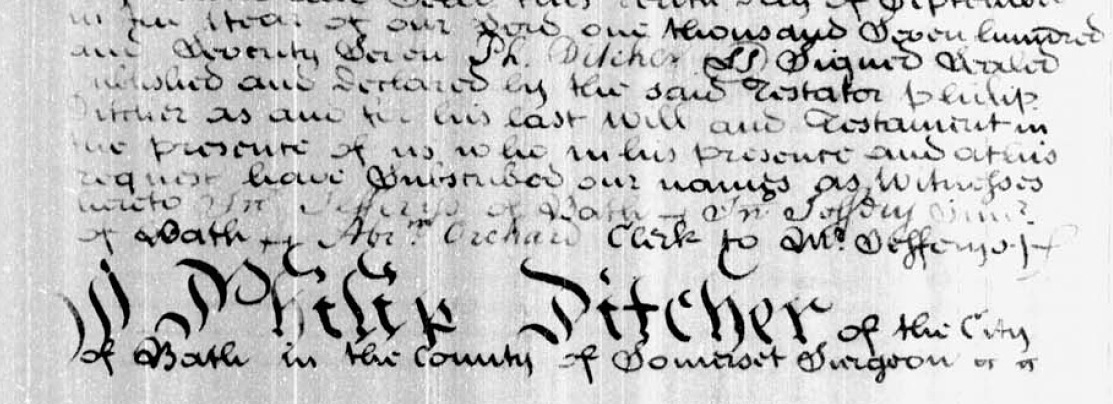 in the Year of our Lord one thousand Seven hundred
and Seventy Seven Ph. Ditcher LS Signed Sealed
published and Declared by the said Testator Philip
Ditcher as and for his last Will and Testament in
the presence of us who in his presence and at his
request have Subscribed our names as Witnesses
hereto Jnº Jefferys of Bath Jnº
of Bath Abrm. Orchard Clerk to Mr. Jefferys
I Philip Ditcher of the City
of Bath in the County of Somerset Surgeon